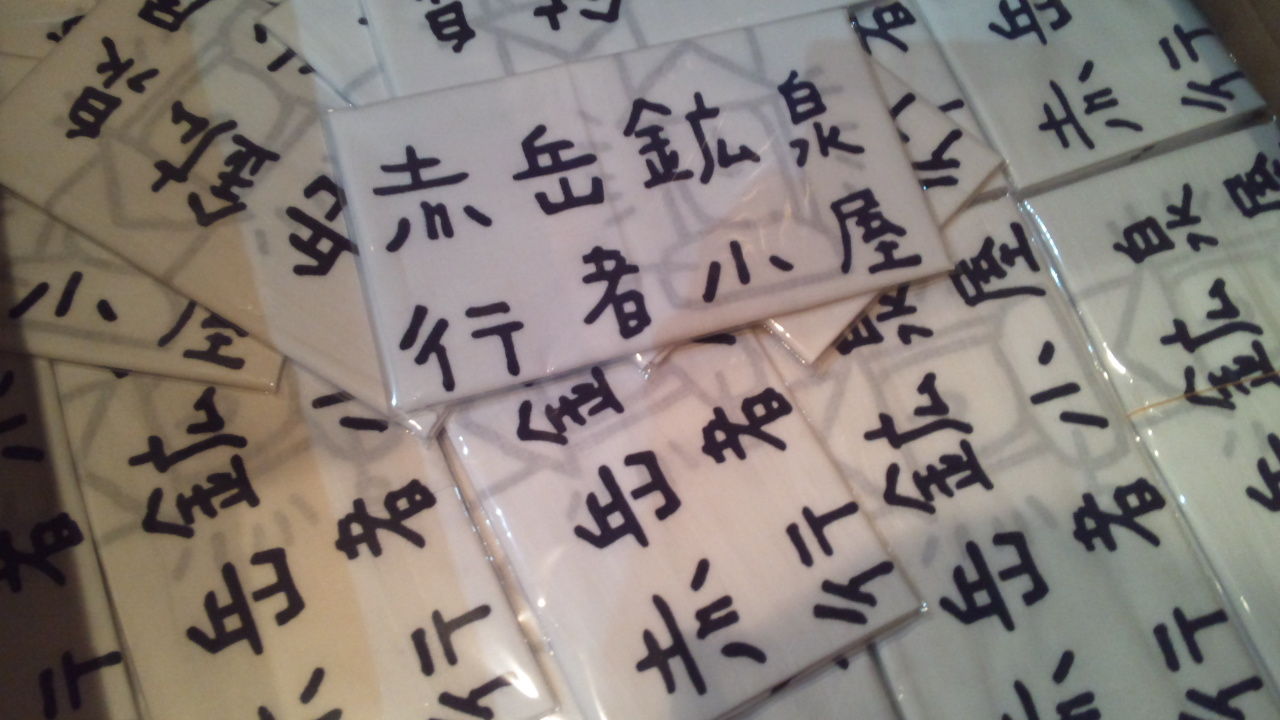 赤岳鉱泉
行者小屋